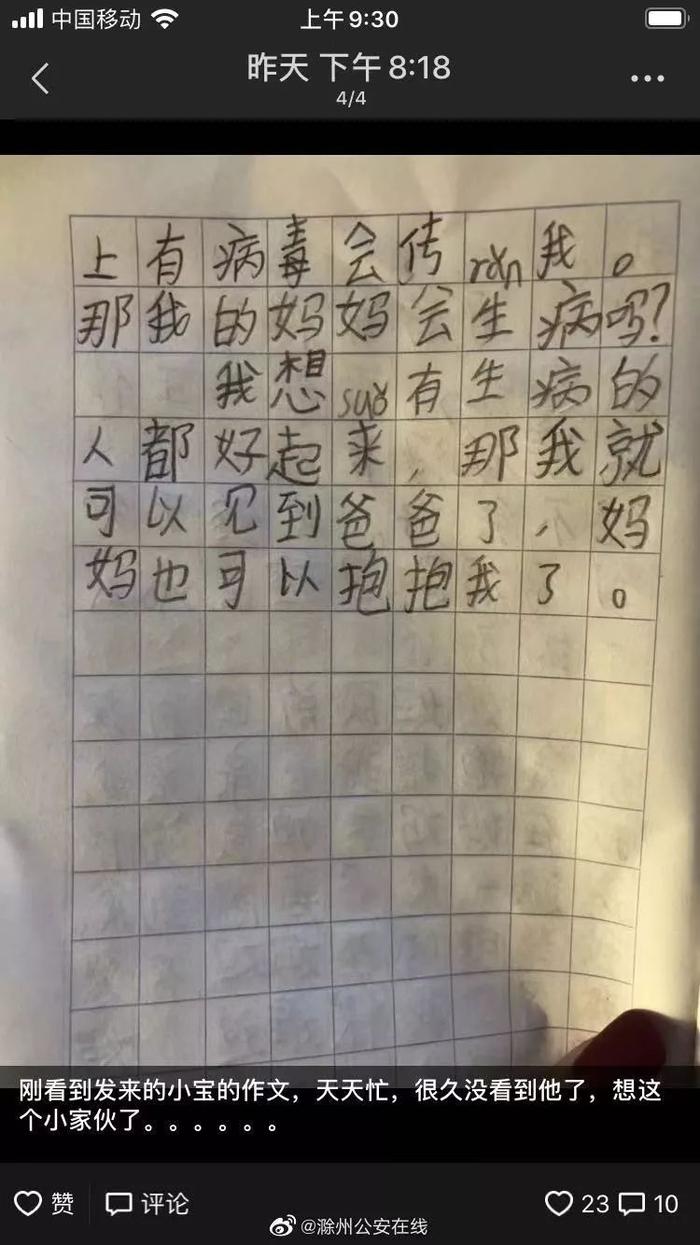 中国移动 上午9:30
昨天 下午8:18
4/4
上有病毒会传rǎn我。
那我的妈妈会生病吗?
我想suǒ有生病的
人都好起来，那我就
可以见到爸爸了，妈
妈也可以抱抱我了。
刚看到发来的小宝的作文，天天忙，很久没看到他了，想这
个小家伙了。。。。。。
赞 评论 23 10
@滁州公安在线